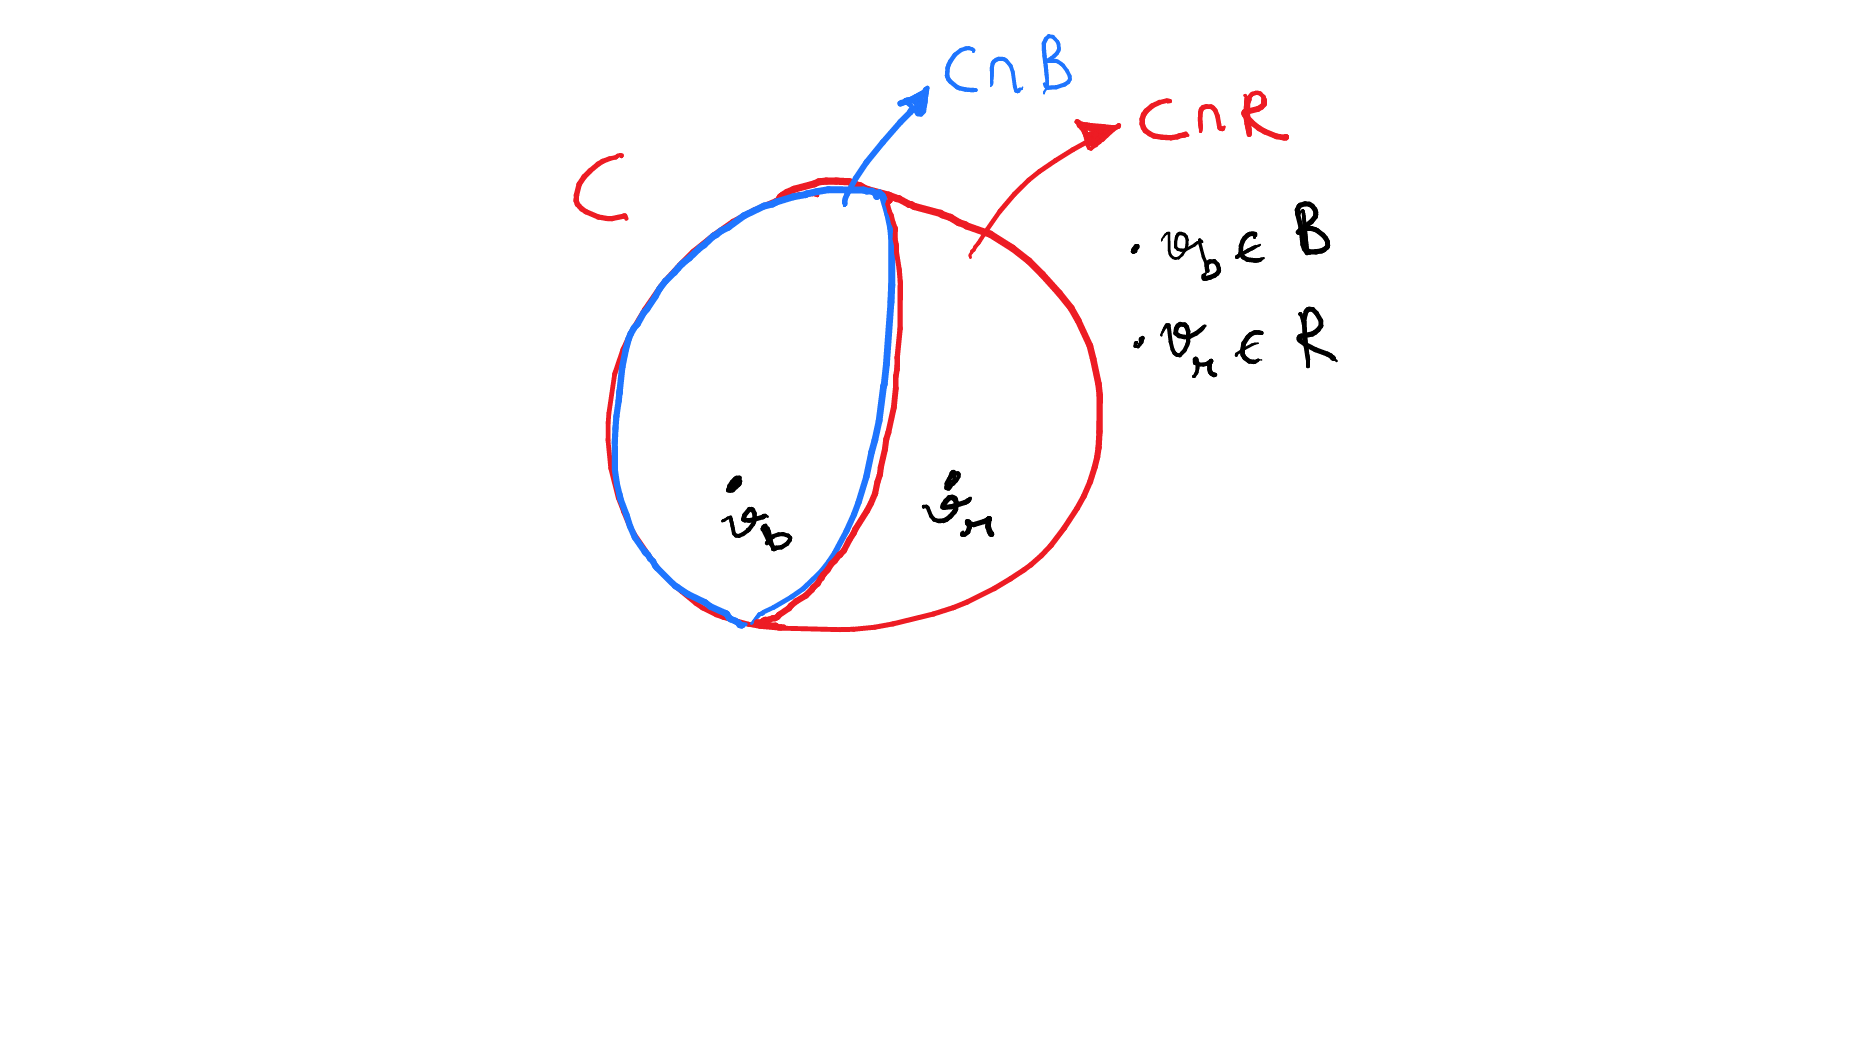 C∩B
C∩R
C
· v_b ∈ B
· v_r ∈ R
v_b
v_r